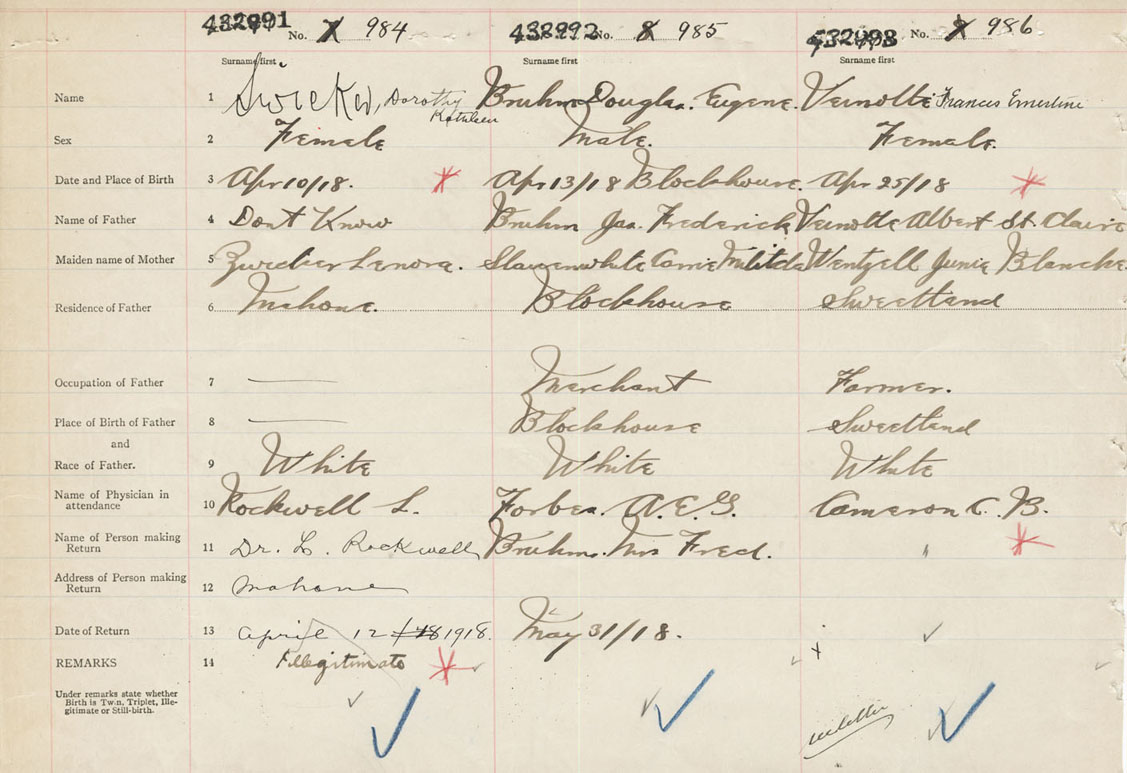 432991 No. 7 984 432992 No. 8 985 432993 No. 9 986
Surname first. Surname first Surname first
Name 1 Zwicker, Dorothy Kathleen Bruhm Douglas. Eugene. Veinotte Frances Ernestine
Sex 2 Female Male. Female.
Date and Place of Birth 3 Apr 10/18. Apr 13/18 Blockhouse. Apr 25/18
Name of Father 4 Dont Know Bruhm Jas. Frederick Veinotte Albert St. Claire
Maiden name of Mother 5 Zwicker Lenora. Slauenwhite Carrie Militda Wentzell Junie Blanche.
Residence of Father 6 Mahone. Blockhouse Sweetland
Occupation of Father 7 — Merchant Farmer.
Place of Birth of Father 8 — Blockhouse Sweetland
and
Race of Father. 9 White White White
Name of Physician in
attendance 10 Rockwell L. Forbes. A. E. G. Cameron C. B.
Name of Person making
Return 11 Dr. L. Rockwell Bruhm. Mrs Fred. "
Address of Person making
Return 12 Mahone
Date of Return 13 April 12 1918. May 31/18.
REMARKS 14 Illegitimate
Under remarks state whether
Birth is Twin, Triplet, Ille-
gitimate or Still-birth.